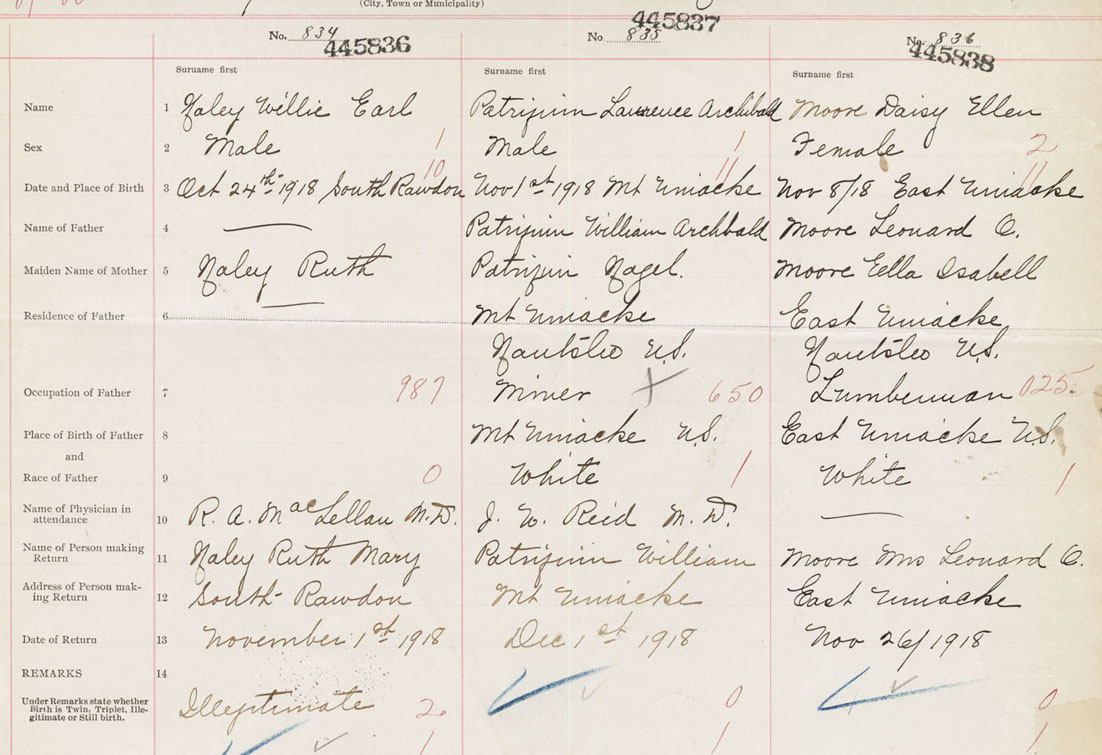 (City, Town or Municipality)
No. 834 445836
No 835 445837
No. 836 445838
Surname first Surname first Surname first
Name 1 Haley Willie Earl Patriquin Laurence Archibald Moore Daisy Ellen
Sex 2 Male 1 Male 1 Female 2
10 11 11
Date and Place of Birth 3 Oct 24th 1918 South Rawdon Nov 1st 1918 Mt Uniacke Nov 8/18 East Uniacke
Name of Father 4 — Patriquin William Archbald Moore Leonard O.
Maiden Name of Mother 5 Haley Ruth Patriquin Moore Ella Isabell
Residence of Father 6 — Mt Uniacke East Uniacke
Hants Co N.S. Hants Co N.S.
Occupation of Father 7 987 Miner 650 Lumberman 025
Place of Birth of Father 8 Mt Uniacke N.S. East Uniacke N.S.
and
Race of Father 9 0 White 1 White 1
Name of Physician in
attendance 10 R. A. MacLellan M.D. J. W. Reid M.D. —
Name of Person making
Return 11 Haley Ruth Mary Patriquin William Moore Mrs Leonard O.
Address of Person mak-
ing Return 12 South Rawdon Mt Uniacke East Uniacke
Date of Return 13 November 1st 1918 Dec 1st 1918 Nov 26/1918
REMARKS 14
Under Remarks state whether
Birth is Twin, Triplet, Ille-
gitimate or Still birth.
Illegitimate 2 0 0
1 1 1